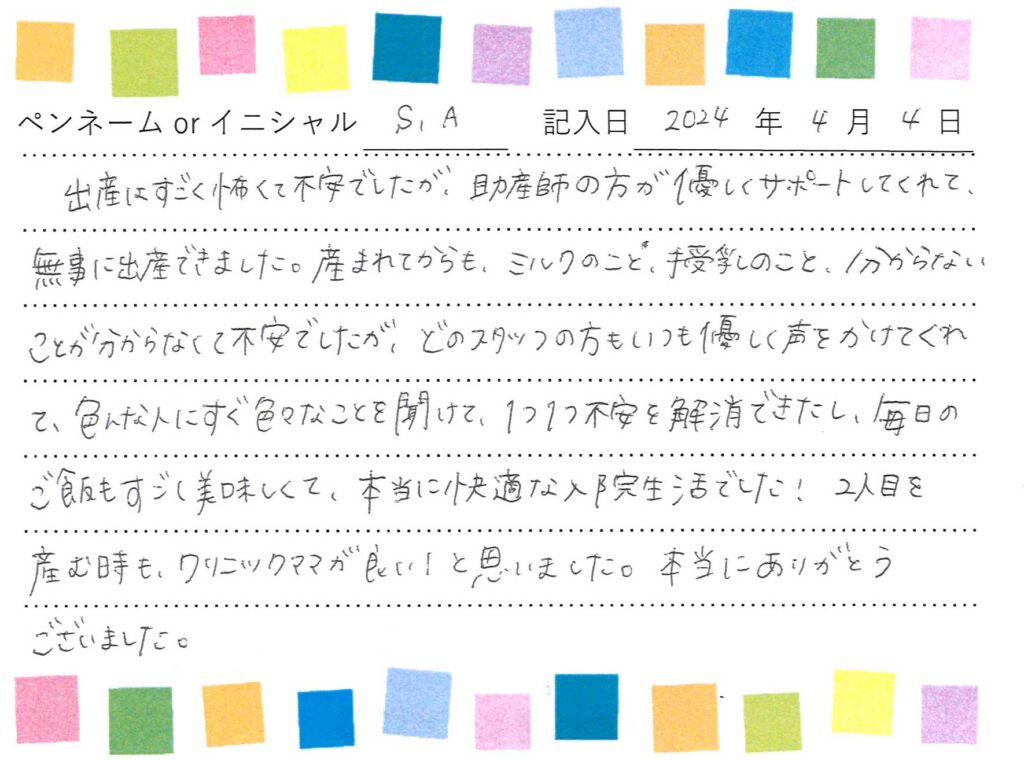 ペンネーム or イニシャル S,A 記入日 2024 年 4 月 4 日
出産はすごく怖くて不安でしたが、助産師の方が優しくサポートしてくれて、
無事に出産できました。産まれてからも、ミルクのこと、授乳のこと、分からない
ことが分からなくて不安でしたが、どのスタッフの方もいつも優しく声をかけてくれ
て、色んな人にすぐ色々なことを聞けて、1つ1つ不安を解消できたし、毎日の
ご飯もすごく美味しくて、本当に快適な入院生活でした！ 2人目を
産む時も、クリニックママが良い！と思いました。本当にありがとう
ございました。